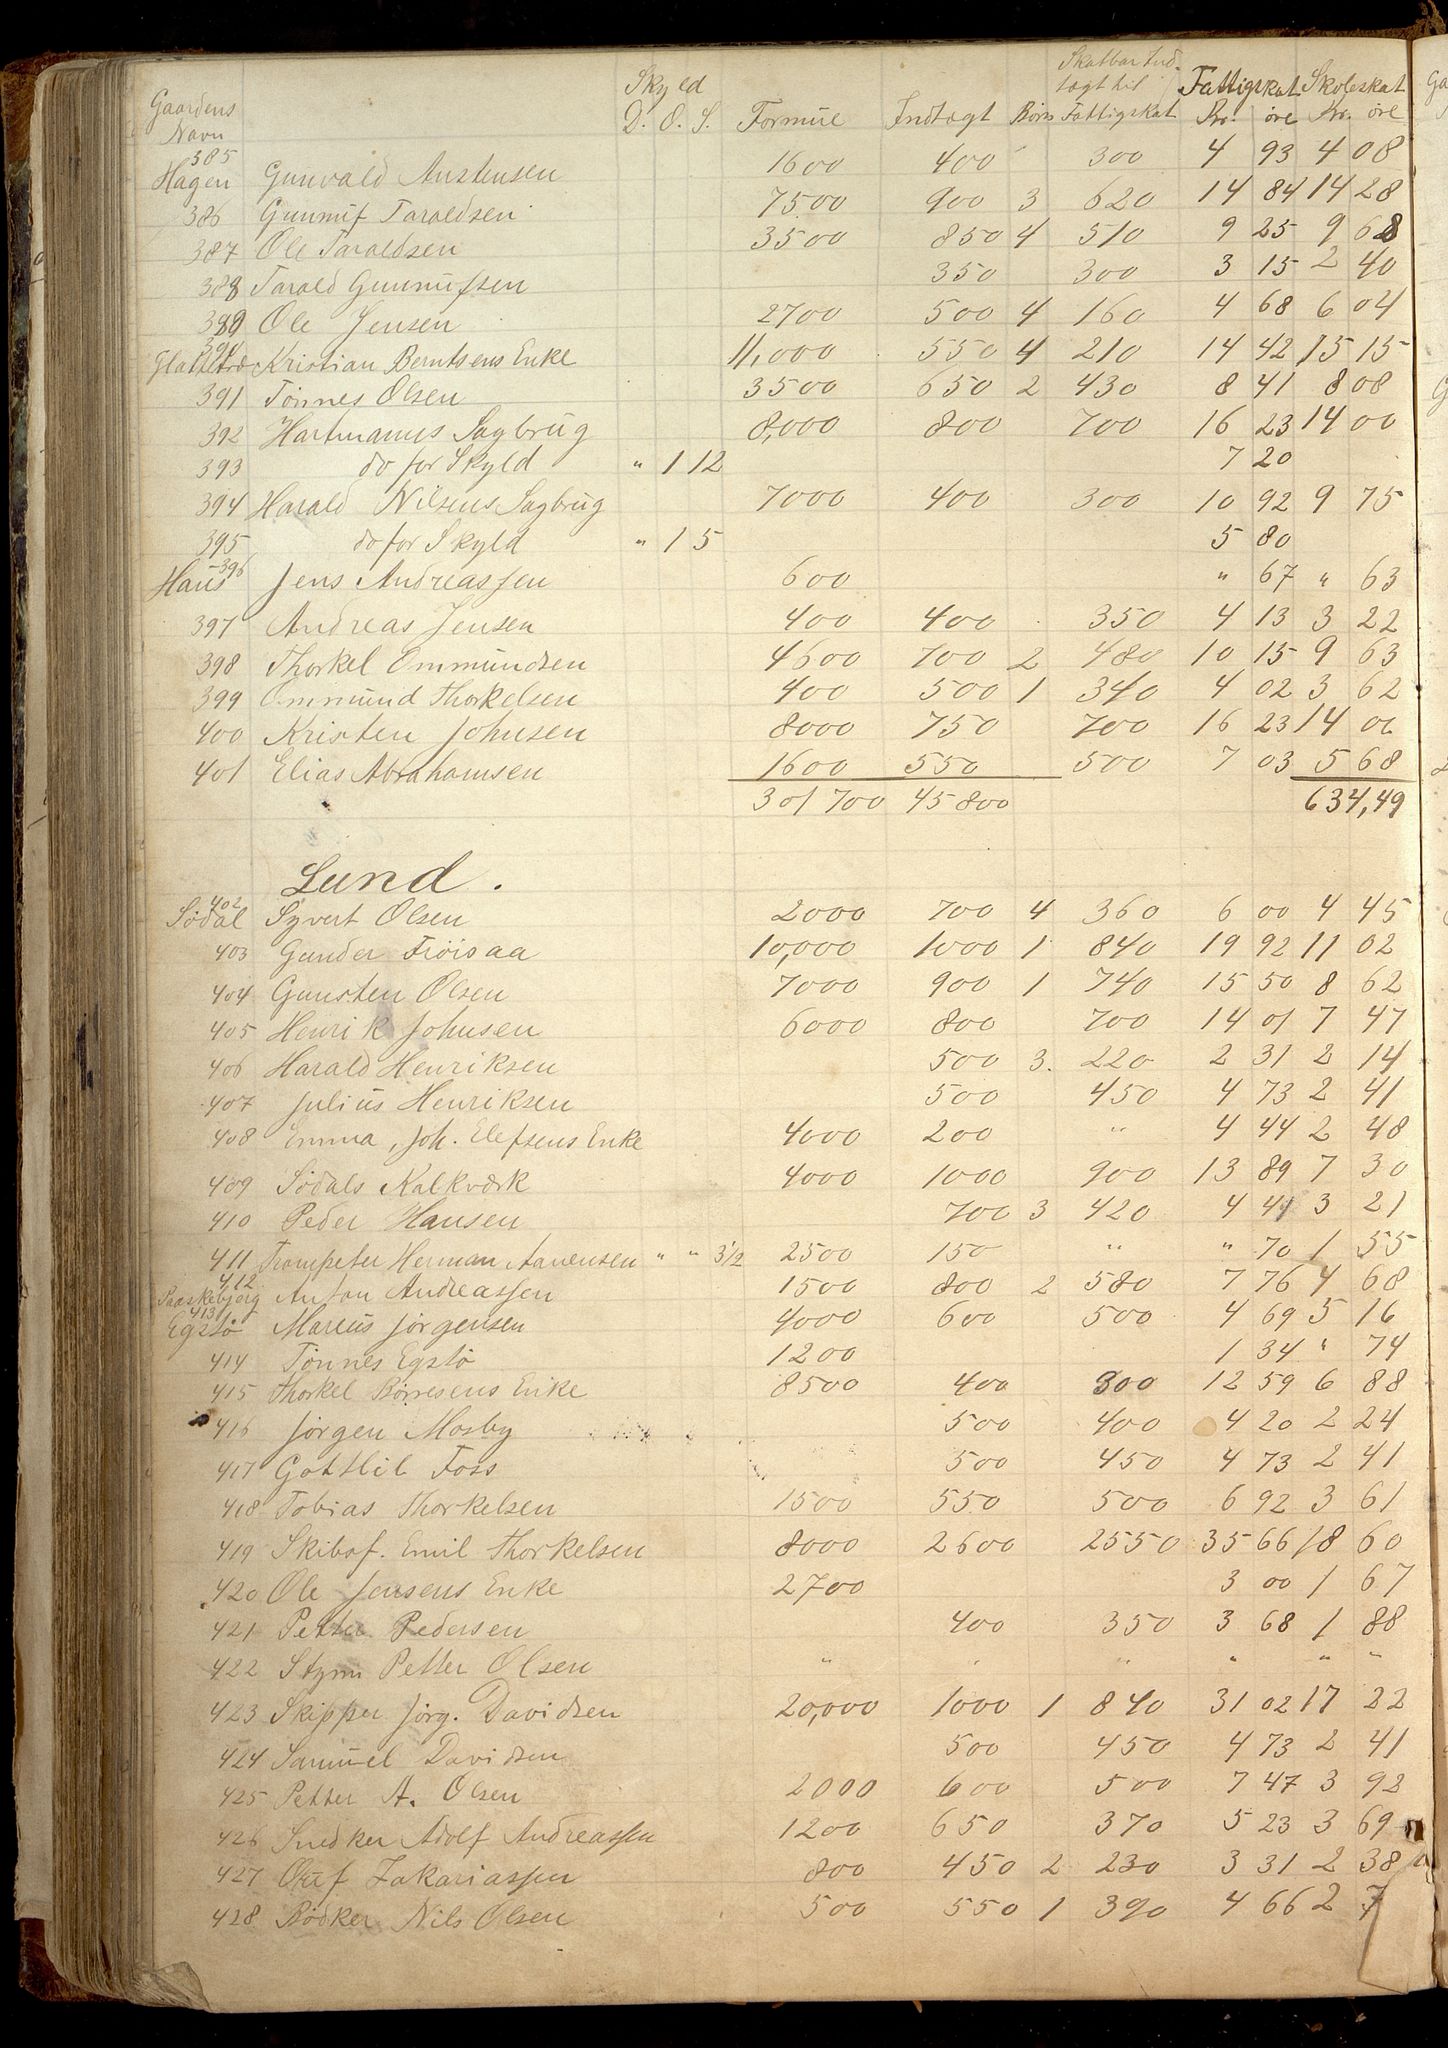 Gaardens Navn | Skyld D. O. S. | Formue | Indtægt | Børn | Skatbar Indtægt til Fattigskat | Fattigskat Kr. øre | Skoleskat Kr. øre
385 Hagen Gunvald Austensen 1600 400 300 4 93 4 08
386 Gunnuf Taraldsen 7500 900 3 620 14 84 14 28
387 Ole Taraldsen 3500 850 4 510 9 25 9 68
388 Tarald Gunnufsen 350 300 3 15 2 40
389 Ole Jensen 2700 500 4 160 4 68 6 04
Kristian Berntsens Enke 11,000 550 4 210 14 42 15 15
391 Tønnes Olsen 3500 650 2 430 8 41 8 08
392 Hartmanns Sagbrug 8,000 800 700 16 23 14 00
393 do for Skyld " 1 12 7 20
394 Harald Nilsens Sagbrug 7000 400 300 10 92 9 75
395 do for Skyld " 1 5 5 80
396 Haus Jens Andreassen 600 " 67 " 63
397 Andreas Jensen 400 400 350 4 13 3 22
398 Thorkel Ommundsen 4600 700 2 480 10 15 9 63
399 Ommund Thorkelsen 400 500 1 340 4 02 3 62
400 Kristen Johnsen 8000 750 700 16 23 14 00
401 Elias Abrahamsen 1600 550 500 7 03 5 68
301 700 45 800 634,49
Lund.
402 Sødal Syvert Olsen 2000 700 4 360 6 00 4 45
403 Gunder Frøisaa 10,000 1000 1 840 19 92 11 02
404 Gunsten Olsen 7000 900 1 740 15 50 8 62
405 Henrik Johnsen 6000 800 700 14 01 7 47
406 Harald Henriksen 500 3. 220 2 31 2 14
407 Julius Henriksen 500 450 4 73 2 41
408 Emma, Joh. Elefsens Enke 4000 200 " 4 44 2 48
409 Sødals Kalkværk 4000 1000 900 13 89 7 30
410 Peder Hansen 700 3 420 4 41 3 21
411 Trompeter Herman Aanensen " " 3½ 2500 150 " " 70 1 55
412 Paaskebjerg Anton Andreassen 1500 800 2 580 7 76 4 68
413 Egstø Marius Jørgensen 4000 600 500 4 69 5 16
414 Tønnes Egstø 1200 1 34 " 74
415 Thorkel Børresens Enke 8500 400 300 12 59 6 88
416 Jørgen Mosby 500 400 4 20 2 24
417 Gottlib Foss 500 450 4 73 2 41
418 Tobias Thorkelsen 1500 550 500 6 92 3 61
419 Skibsf. Emil Thorkelsen 8000 2600 2550 35 66 18 60
420 Ole Jensens Enke 2700 3 00 1 67
421 Petter Pedersen 400 350 3 68 1 88
422 Styrm Petter Olsen " " " " " "
423 Skipper Jørg. Davidsen 20,000 1000 1 840 31 02 17 22
424 Samuel Davidsen 500 450 4 73 2 41
425 Petter A. Olsen 2000 600 500 7 47 3 92
426 Snedker Adolf Andreassen 1200 650 370 5 23 3 69
427 Oluf Zakariassen 800 450 2 230 3 31 2 38
428 Bødker Nils Olsen 500 550 1 390 4 66 2 7